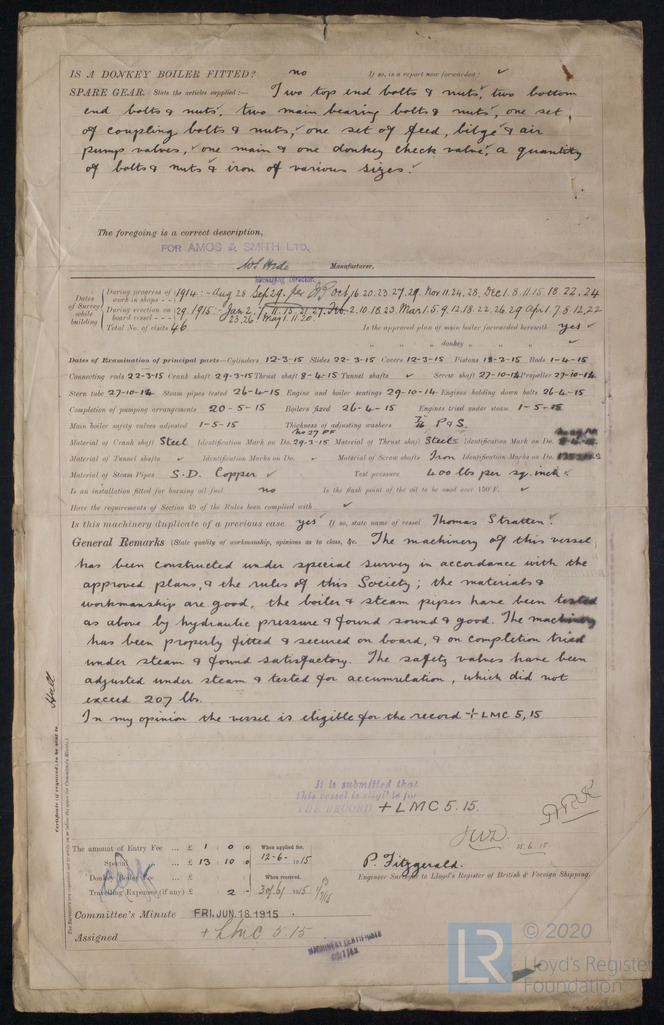 IS A DONKEY BOILER FITTED? no If so, is a report now forwarded? ✓
SPARE GEAR. State the articles supplied:— Two top end bolts & nuts, two bottom
end bolts & nuts, two main bearing bolts & nuts, one set
of coupling bolts & nuts, one set of feed, bilge & air
pump valves, one main & one donkey check valve, a quantity
of bolts & nuts & iron of various sizes.
The foregoing is a correct description,
FOR AMOS & SMITH LTD.
Manufacturer.
Managing Director.
Dates of Survey while building
During progress of work in shops - - 1914:- Aug 28 Sep 29. Oct 16. 20. 23. 27. 29. Nov 11. 24. 28. Dec 1. 8. 11. 15. 18. 22. 24
During erection on board vessel - - - 29. 1915:- Jan 2. 7. 11. 15. 21. 27. Feb 2. 10. 18. 23. Mar 1. 5. 9. 12. 18. 22. 26. 29 Apr 1. 7. 8. 12. 22
23. 26 May 1. 11. 20
Total No. of visits 46 Is the approved plan of main boiler forwarded herewith yes ✓
" " " donkey " " " ✓
Dates of Examination of principal parts—Cylinders 12-3-15 Slides 22-3-15 Covers 12-3-15 Pistons 18-3-15 Rods 1-4-15
Connecting rods 22-3-15 Crank shaft 29-3-15 Thrust shaft 8-4-15 Tunnel shafts ✓ Screw shaft 27-10-14 Propeller 27-10-14
Stern tube 27-10-14 Steam pipes tested 26-4-15 Engine and boiler seatings 29-10-14 Engines holding down bolts 26-4-15
Completion of pumping arrangements 20-5-15 Boilers fixed 26-4-15 Engines tried under steam 1-5-15
Main boiler safety valves adjusted 1-5-15 Thickness of adjusting washers P & S.
Material of Crank shaft Steel Identification Mark on Do. No 27 PF 29-3-15 Material of Thrust shaft Steel Identification Mark on Do.
Material of Tunnel shafts ✓ Identification Marks on Do. ✓ Material of Screw shafts Iron Identification Marks on Do.
Material of Steam Pipes S.D. Copper ✓ Test pressure 400 lbs per sq. inch
Is an installation fitted for burning oil fuel no Is the flash point of the oil to be used over 150°F. ✓
Have the requirements of Section 49 of the Rules been complied with ✓
Is this machinery duplicate of a previous case yes If so, state name of vessel Thomas Stratten.
General Remarks (State quality of workmanship, opinions as to class, &c. The machinery of this vessel
has been constructed under special survey in accordance with the
approved plans, & the rules of this Society; the materials &
workmanship are good, the boiler & steam pipes have been tested
as above by hydraulic pressure & found sound & good. The machinery
has been properly fitted & secured on board, & on completion tried
under steam & found satisfactory. The safety valves have been
adjusted under steam & tested for accumulation, which did not
exceed 207 lbs.
In my opinion the vessel is eligible for the record + LMC 5,15
Certificate (if required) to be sent to Hull
It is submitted that
this vessel is eligible for
THE RECORD + LMC 5.15.
The amount of Entry Fee .. £ 1 0 0 When applied for,
Special ... £ 13 10 0 12-6-1915
Donkey Boiler Fee ... £
Travelling Expenses (if any) £ 2 - When received, 30/6/1915
P. Fitzgerald.
Engineer Surveyor to Lloyd's Register of British & Foreign Shipping.
Committee's Minute FRI. JUN. 18. 1915
Assigned + LMC 5.15
MACHINERY CERTIFICATE
LR © 2020
Lloyd's Register
Foundation